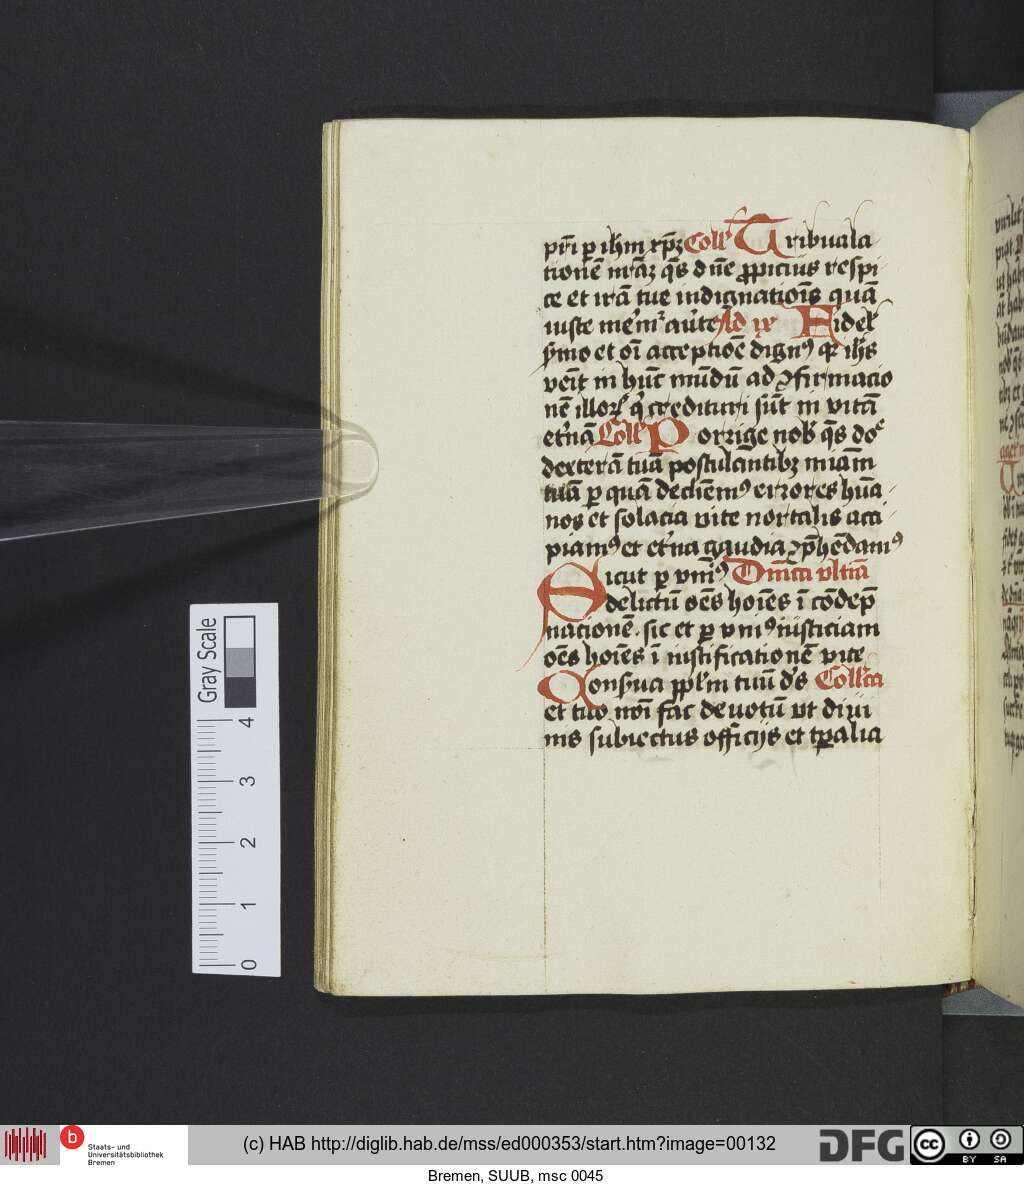 pr̄i p ih̄m xp̄ꝫ Coll' Tribuala
tionē nr̄aꝫ qs̄ dn̄e ꝓpicius respi
ce et irā tue indignatiōis quā
iuste mem' auꝰte Ad ix Fidel'
smo et oi acceptiōe dignꝰ qr ih̄s
venit in hūc mūdū ad ꝯfirmacio
nē illoꝝ q' credituri sūt in vitā
et'nā Coll' Porrige nob' qs̄ do'
dexterā tuā postulantibꝫ miām
tuā p quā decliem' errores hūa
nos et solacia vite mortalis acci
piamꝰ et et'na gaudia ꝯp̄hēdamꝰ
Sicut p vniꝰ Dn̄ica vltīa
delictū oēs hoīes ī cōdep̄
nacionē. sic et p vniꝰ iusticiam
oēs hoīes ī iustificationē vite
Consua pplm tuū ds̄ Coll'cta
et tuo noī fac deuotū vt diui
nis subiectus officijs et tp̄alia
Gray Scale
4
3
2
1
0
b
Staats- und
Universitätsbibliothek
Bremen
(c) HAB http://diglib.hab.de/mss/ed000353/start.htm?image=00132
DFG
cc
BY SA
Bremen, SUUB, msc 0045